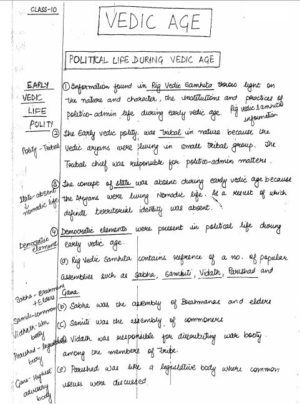 CLASS-10
VEDIC AGE
POLITICAL LIFE DURING VEDIC AGE
EARLY
VEDIC
LIFE
POLITY
① Information found in Rig Vedic Samhita throws light on
the nature and character, the institutions and practices of
politico-admin life during early vedic age.
Rig vedic Samhita
information
Polity - Tribal
② The Early Vedic polity, was Tribal in nature because the
Vedic aryans were living in small tribal group. The
Tribal chief was responsible for politico-admin matters.
State-absent
nomadic life
③ The concept of state was absent during early vedic age because
the Aryans were living Nomadic life. As a result of which
definite territorial identity was absent.
Democratic
element
④ Democratic elements were present in political life during
early vedic age.
(a) Rig Vedic Samhita contains refrence of a no. of popular
assemblies such as Sabha, Samhiti, Vidath, Parishad and
Gana.
Sabha - Brahman
+ Elders
Samiti - commoners
Vidhath - War
booty
Parishad - legislative
body
Gana - Highest
advisory
body
(b) Sabha was the assembly of Brahmanas and elders
(c) Samiti was the assembly of commoners
(d) Vidath was responsible for distributing war booty
among the members of Tribe.
(e) Parishad was like a legislative body where common
issues were discussed